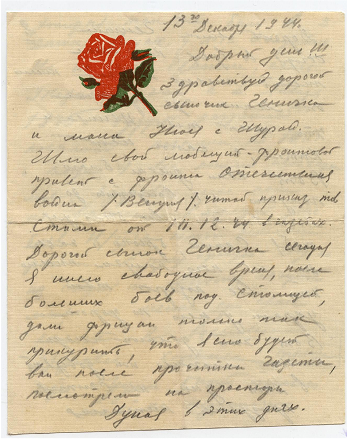 13 30 Декабря 1944.
Добрый день!!!
Здравствуй дорогой
сыночик Геничка
и мама Нюся с Шурой.
Шлю свой любящий-фронтовой
привет с фронта Отечественной
войны /Венгрия/. читай приказ тов
Сталина от 14.12.44 в газетах.
Дорогой сынок Геничка сегодня
Я имею свободное время, после
больших боев под столицей,
дали фрицам только так
прикурить, что ясно будет
вам после прочтения газеты,
посмотрели на просторы
Дуная в этих днях.